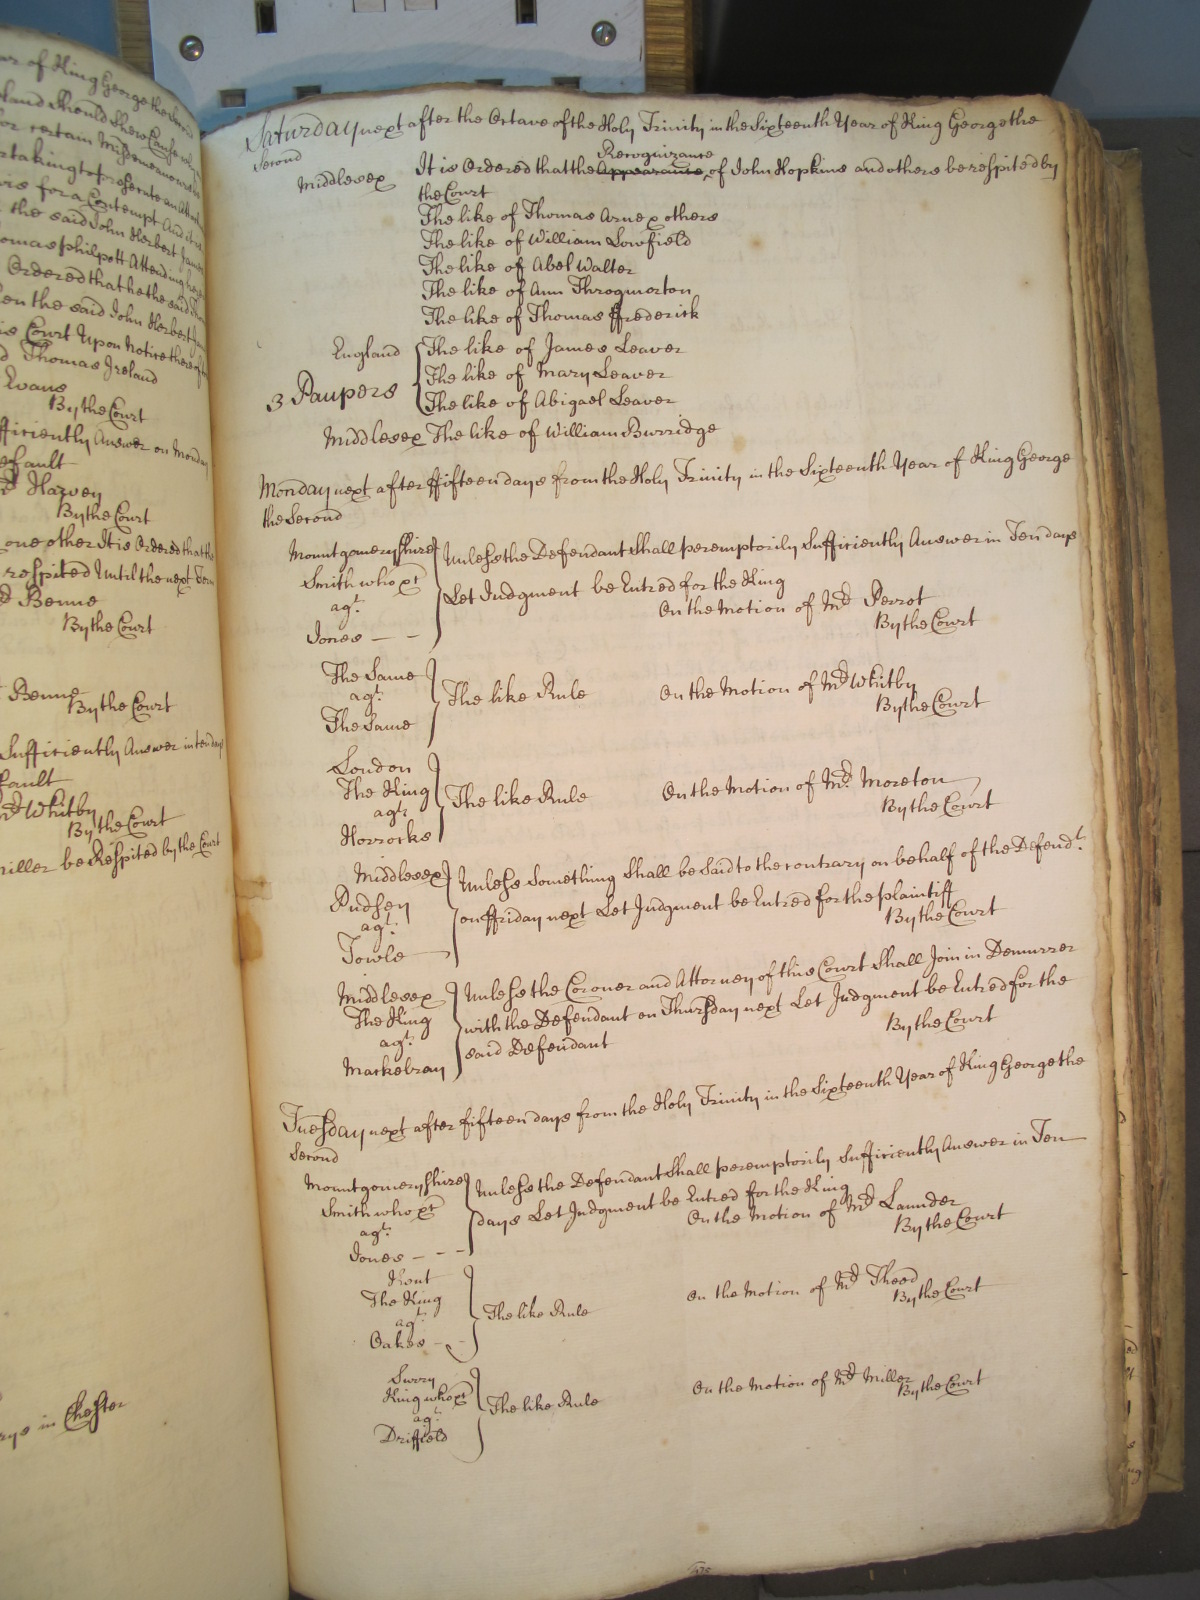 ar of King George the Second
land Should Shew Cause why
for certain Misdemeanours
rtaking to prosecute an
irs for a Contempt And it is
the said John Herbert James
omas Philpott Attending
Ordered that he the said
en the said John Herbert
is Court Upon Notice thereof
d Thomas Ireland
Evans
By the Court
fficiently Answer on Monday
efault
Mr Harvey
By the Court
one other It is Ordered that the
respited Until the next Term
Mr Benne
By the Court
Benne
By the Court
Sufficiently Answer in ten days
fault
Mr Whitby
By the Court
Miller be Respited by the Court
rys in Chester
Saturday next after the Octave of the Holy Trinity in the Sixteenth Year of King George the
Second
Middlesex It is Ordered that the Appearance Recognizance of John Hopkins and others be respited by
the Court
The like of Thomas Arne & others
The like of William Lowfield
The like of Abel Walter
The like of Ann Throgmorton
The like of Thomas ffrederick
England The like of James Leaver
The like of Mary Leaver
3 Paupers The like of Abigael Leaver
Middlesex The like of William Burridge
Monday next after ffifteen days from the Holy Trinity in the Sixteenth Year of King George
the Second
Mountgomeryshire Unless the Defendant Shall peremptorily Sufficiently Answer in Ten days
Smith who &c Let Judgment be Entred for the King
agt. On the Motion of Mr Perrot
Jones - - By the Court
The Same
agt. The like Rule On the Motion of Mr Whitby
The Same By the Court
London
The King The like Rule On the Motion of Mr. Moreton
agt. By the Court
Horrocks
Middlesex Unless Something Shall be Said to the contrary on behalf of the Defendt.
Pudsey on ffriday next Let Judgment be Entred for the plaintiff
agt. By the Court
Towle
Middlesex Unless the Coroner and Attorney of this Court Shall Join in Demurrer
The King with the Defendant on Thursday next Let Judgment be Entred for the
agt. said Defendant By the Court
Mackelray
Tuesday next after fifteen days from the Holy Trinity in the Sixteenth Year of King George the
Second
Mountgomeryshire Unless the Defendant Shall peremptorily Sufficiently Answer in Ten
Smith who &c days Let Judgment be Entred for the King
agt. On the Motion of Mr Launder
Jones - - - By the Court
Kent
The King The like Rule On the Motion of Mr Theed
agt. By the Court
Oakes - -
Surry
King who &c The like Rule On the Motion of Mr Miller
agt. By the Court
Driffield